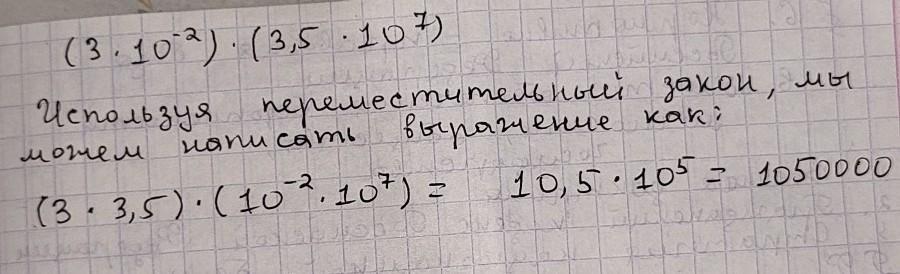 (3 · 10⁻²) · (3,5 · 10⁷)
Используя переместительный закон, мы
можем написать выражение как:
(3 · 3,5) · (10⁻² · 10⁷) = 10,5 · 10⁵ = 1050000